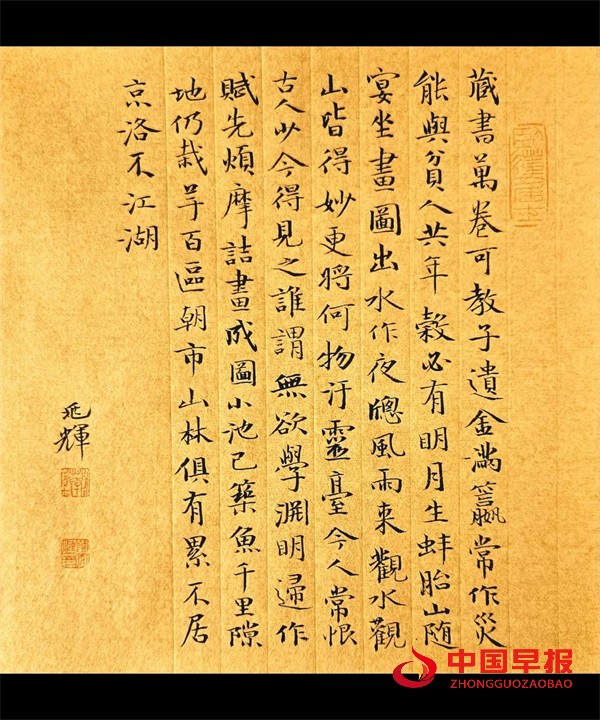 藏書萬卷可教子遺金滿籯常作災
能與貧人共年穀必有明月生蚌胎山隨
宴坐畫圖出水作夜牕風雨來觀水觀
山皆得妙更將何物汙靈臺今人常恨
古人少今得見之誰謂無欲學淵明歸作
賦先煩摩詰畫成圖小池已築魚千里隙
地仍栽芋百區朝市山林俱有累不居
京洛不江湖
兆輝
中国早报
ZHONGGUOZAOBAO